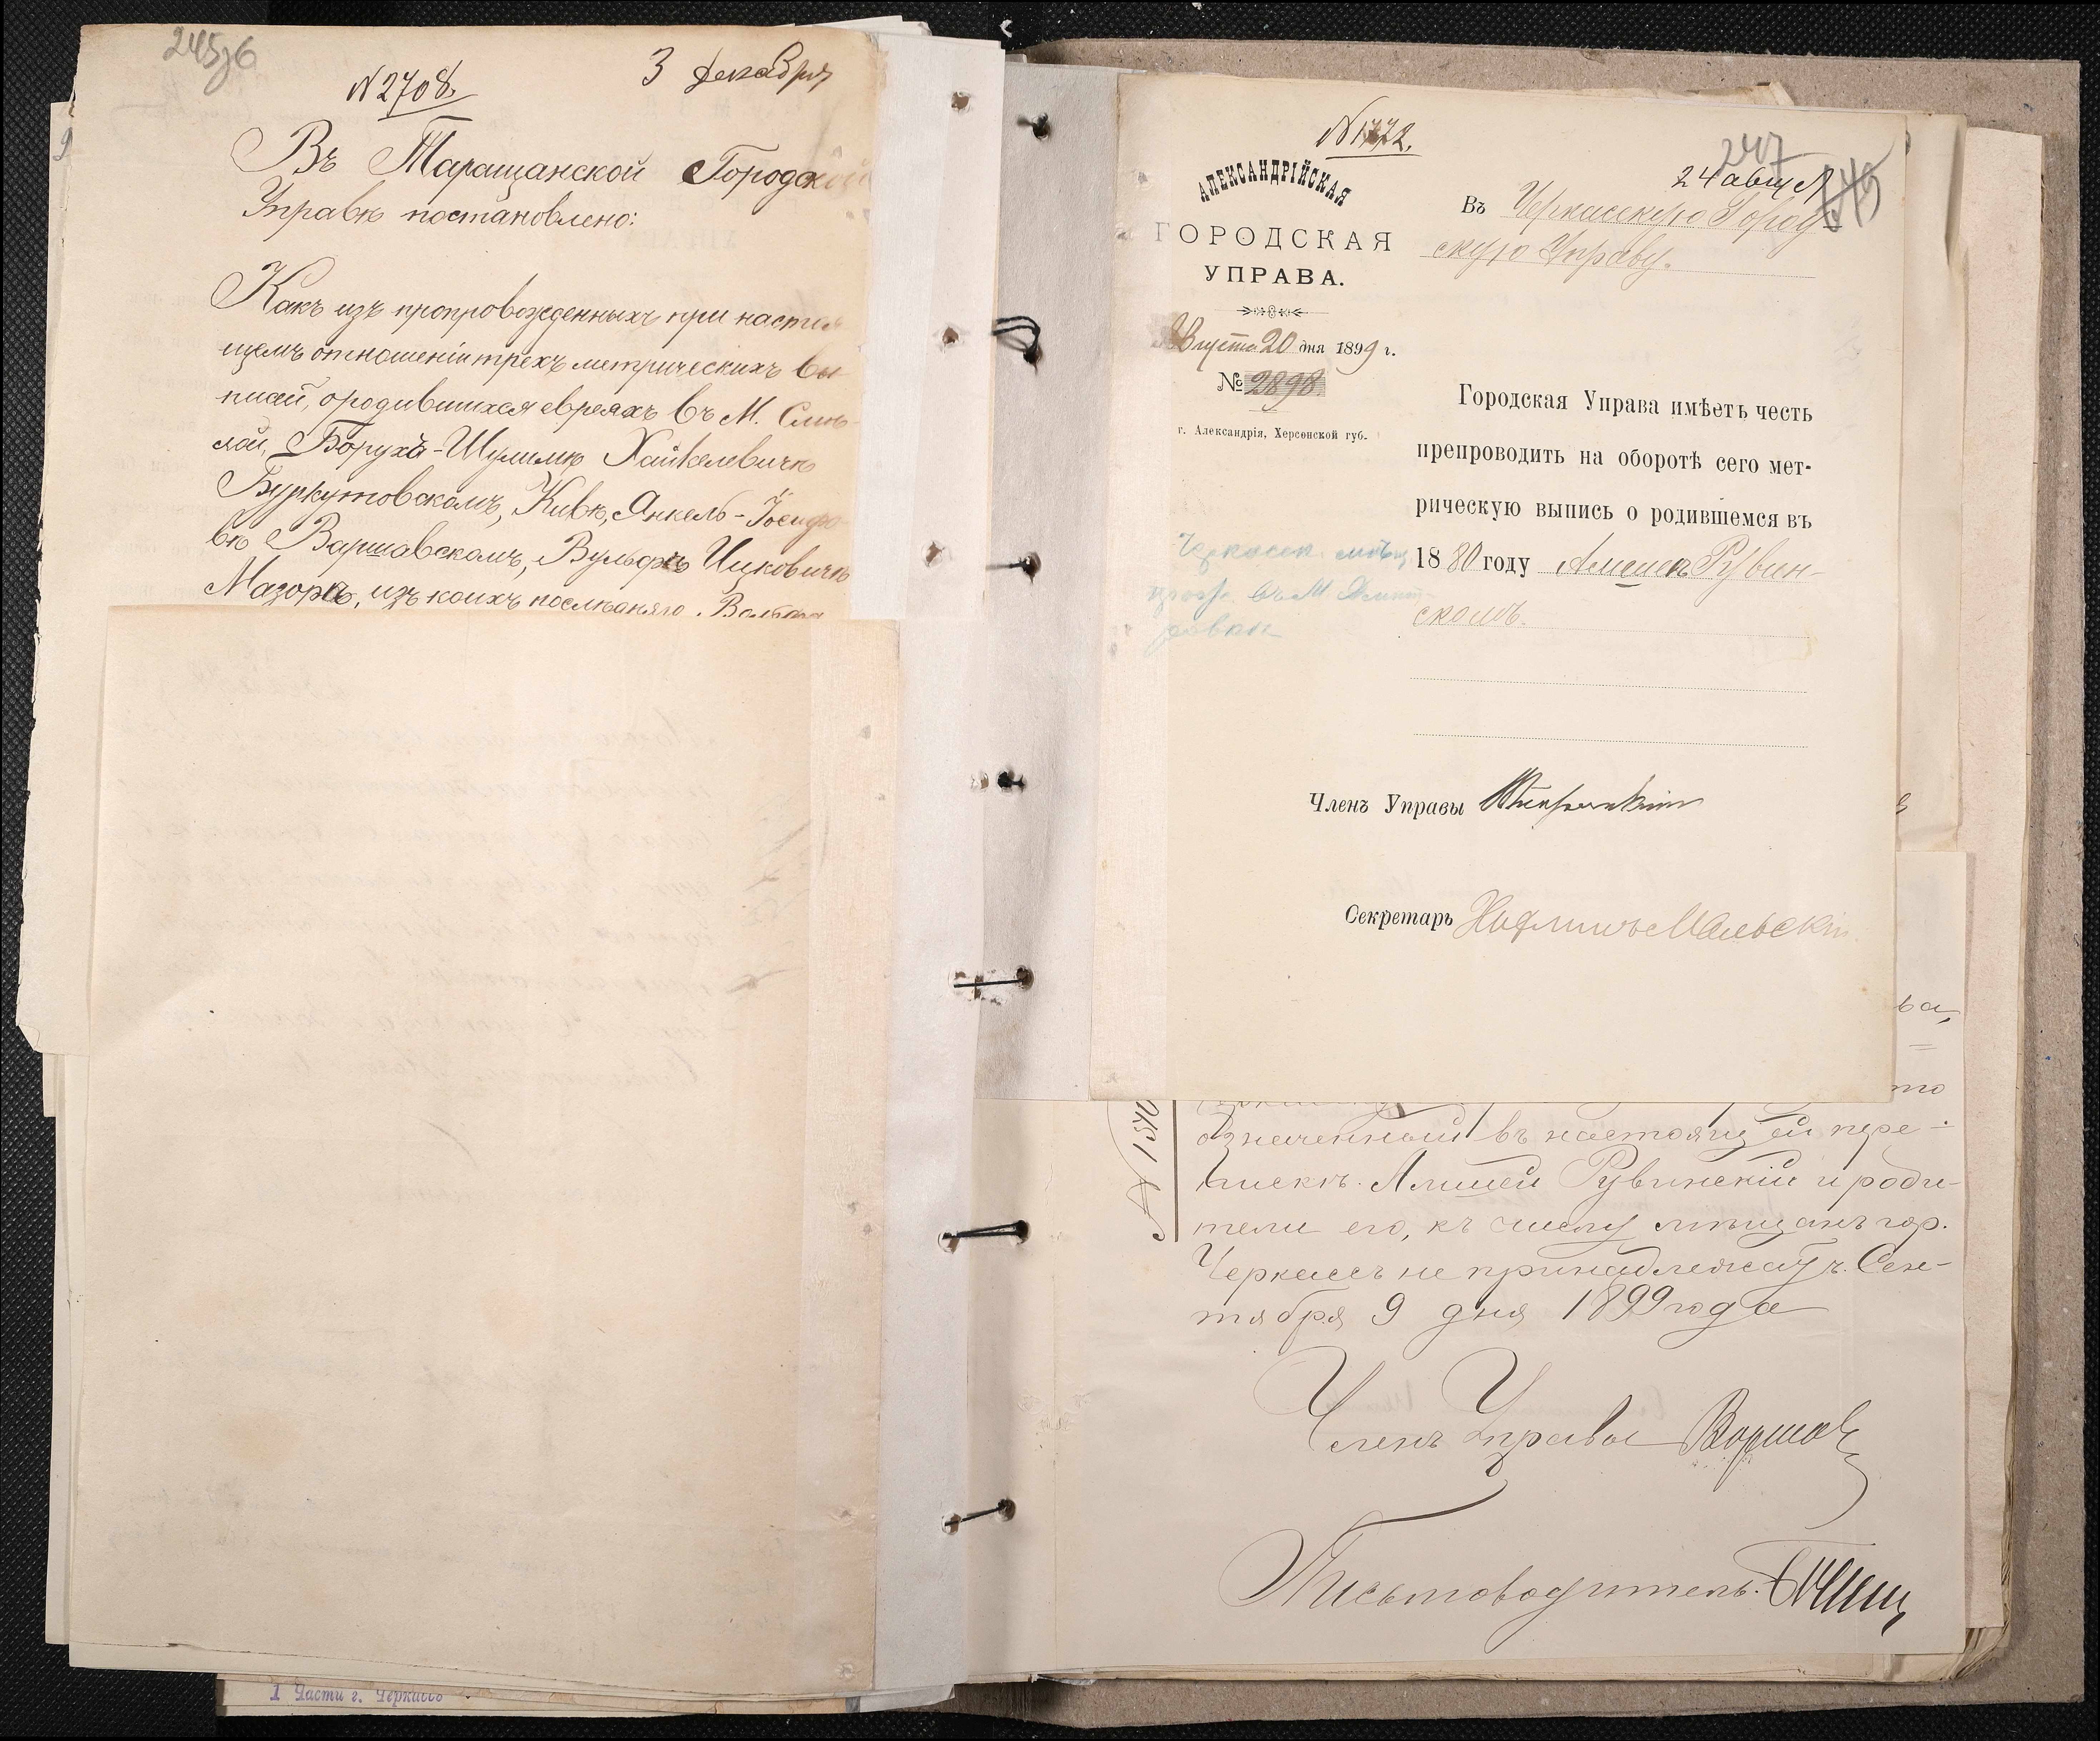 245об
N 2708.
3 Декабря
Въ Таращанской Городской
Управѣ постановлено:
Какъ изъ пропровожденныхъ при настоя
щемъ отношеніи трехъ метрическихъ вы-
писей, о родившихся евреяхъ въ М. Смѣ-
лой, Борухѣ-Шулимѣ Хайкелевичѣ
Буркутовскомъ, Кивѣ, Янкель-Іосифо
вѣ Варшавскомъ, Вульфѣ Ицковичѣ
Мазорѣ, изъ коихъ послѣдняго
1 Части г. Черкассъ
N 1772.
247
24 август
АЛЕКСАНДРІЙСКАЯ
ГОРОДСКАЯ
УПРАВА.
Августа 20 дня 1899 г.
№ 2898
г. Александрія, Херсонской губ.
Въ Черкасскую Город-
скую Управу.
Городская Управа имѣетъ честь
препроводить на оборотѣ сего мет-
рическую выпись о родившемся въ
1880 году Алишеѣ Рувин-
скомъ.
Черкасск. мѣщ.
въ М.
Членъ Управы
Секретарь
означенный въ настоящей пере-
пискѣ Алишей Рувинскій и роди-
тели его, къ числу мѣщанъ гор.
Черкассъ не принадлежатъ. Сен-
тября 9 дня 1899 года
Членъ Управы
Письмоводитель